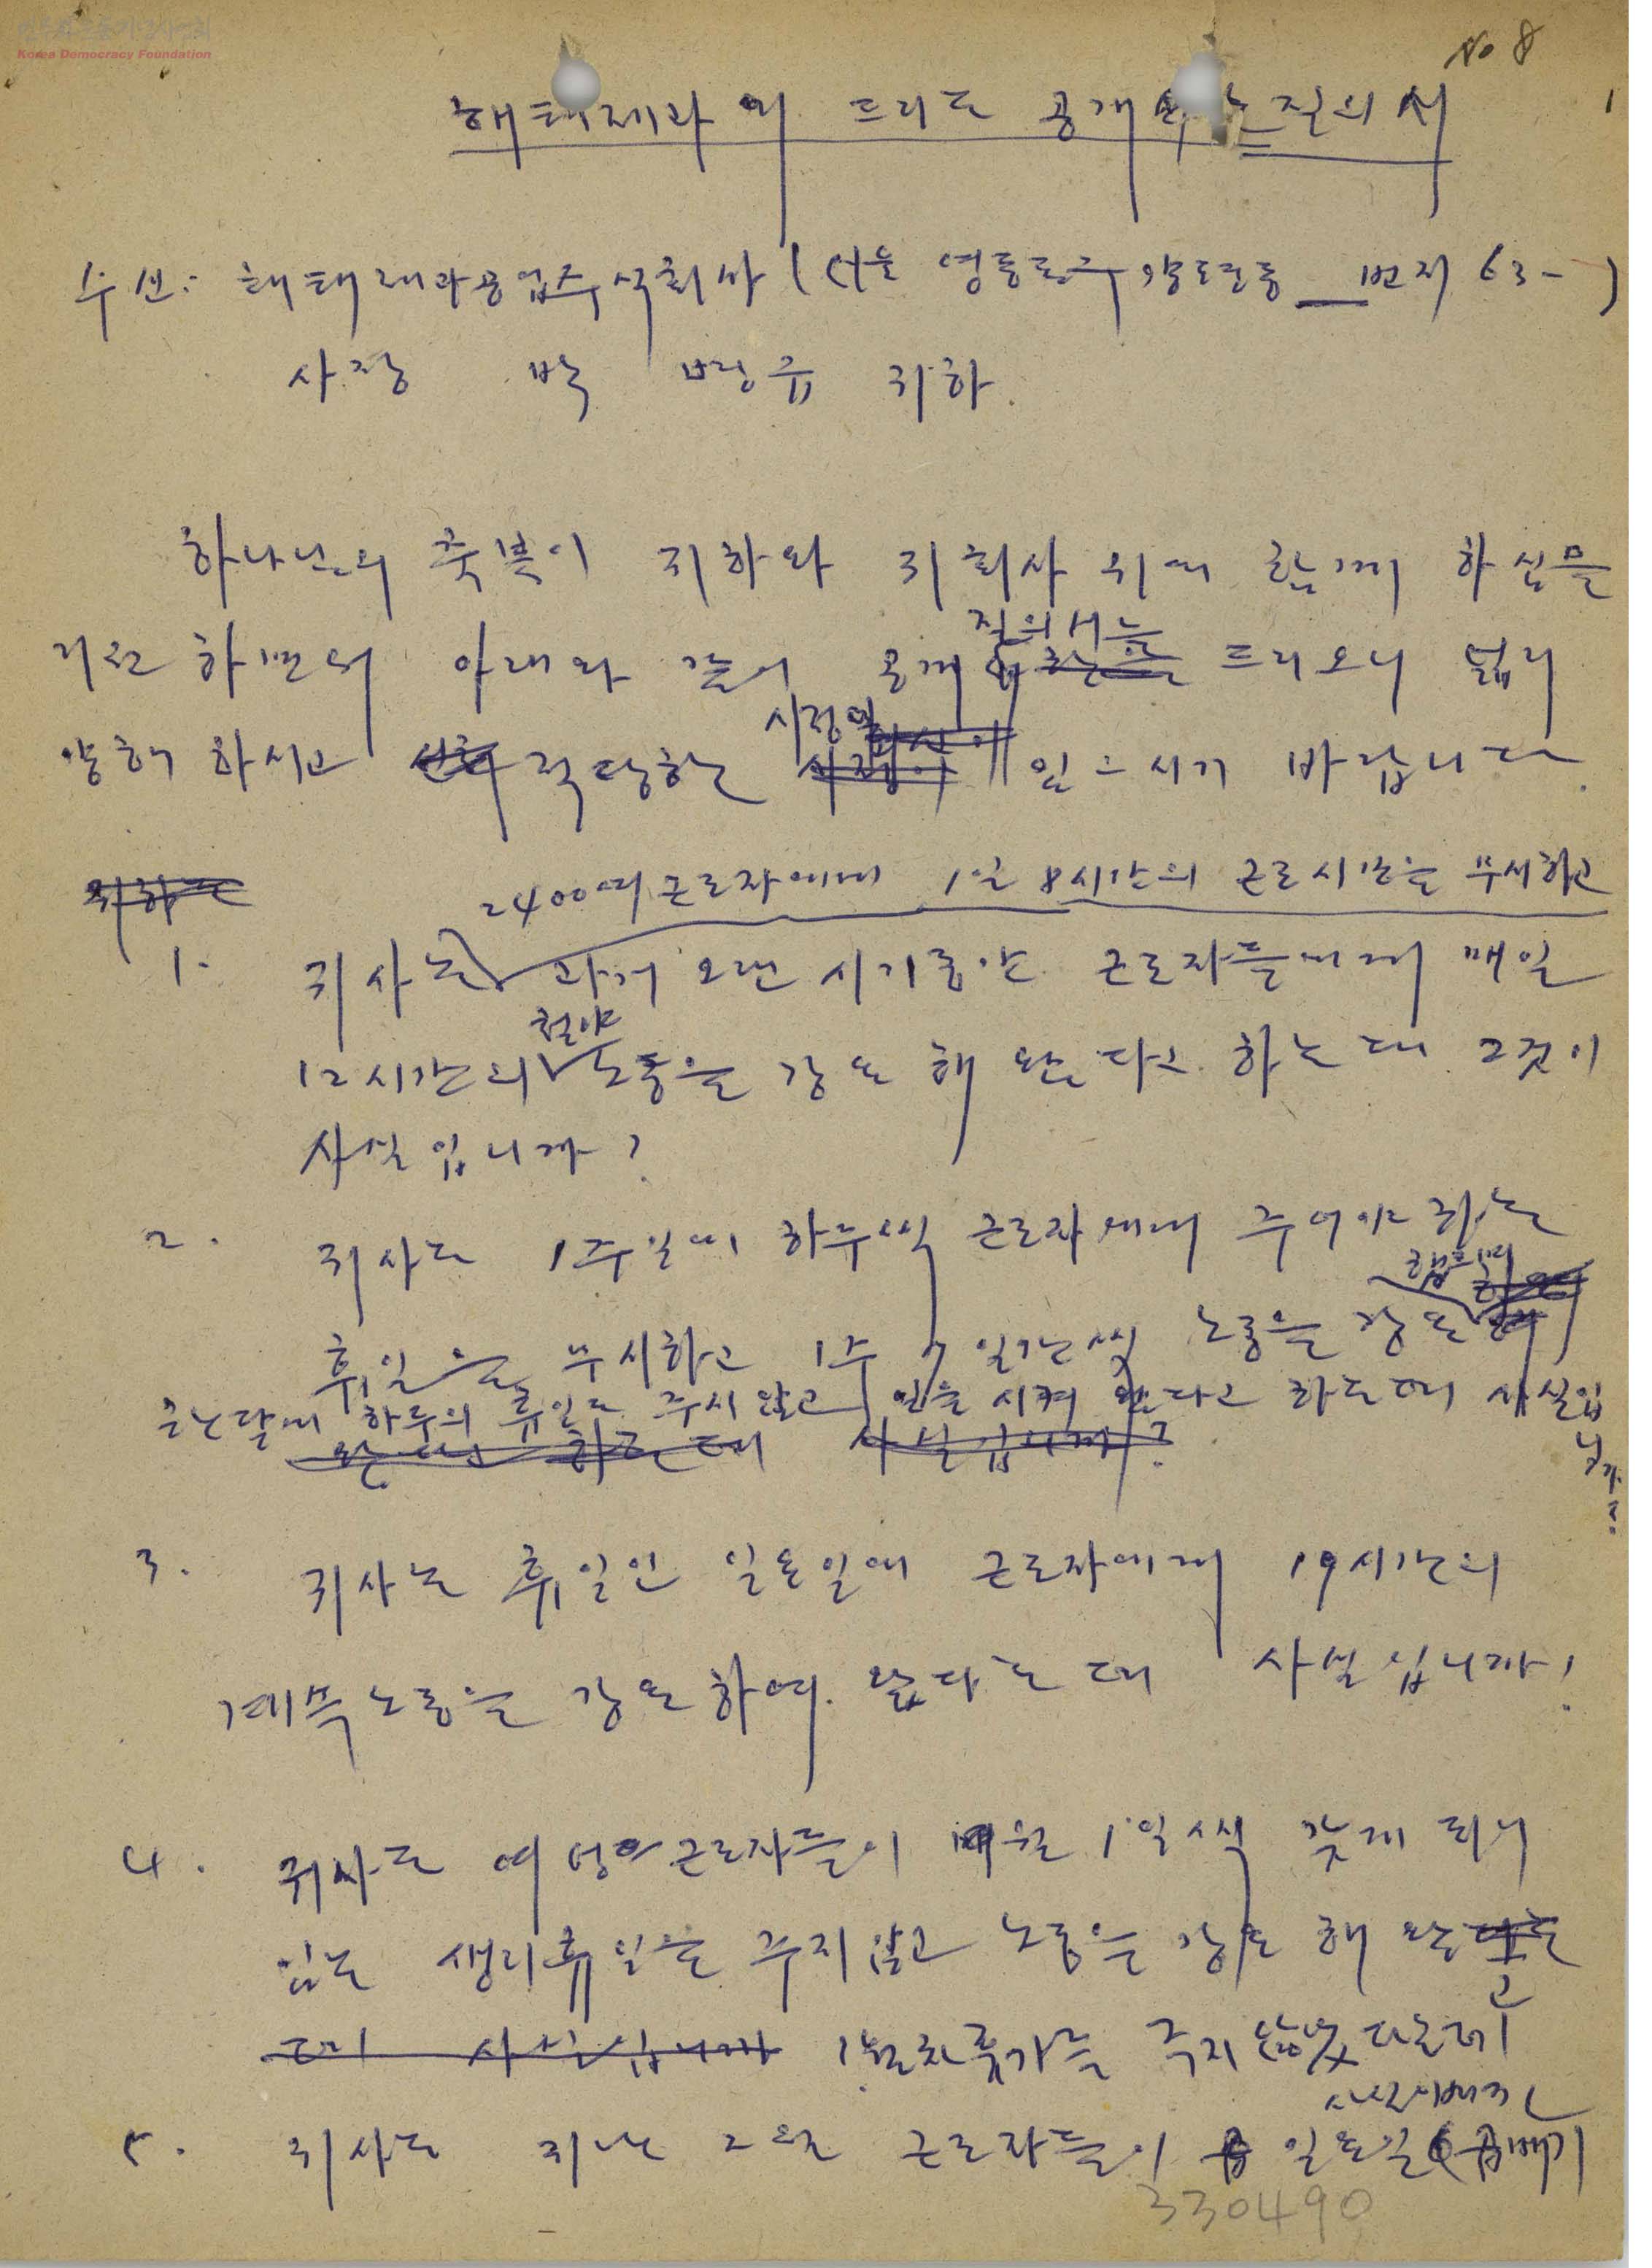 민주화운동기념사업회
Korea Democracy Foundation
No 8
1
해태제과에 드리는 공개 질의서
수신: 해태제과공업주식회사 (서울 영등포구 양평동 번지 63- )
사장 박 병규 귀하.
하나님의 축복이 귀하와 귀회사 위에 함께 하심을
질의서를
기원 하면서 아래와 같이 공개 드리오니 널리
시정일
양해 하시고 적당한 있으시기 바랍니다.
귀하는
2400여 근로자에게 1일 8시간의 근로시간을 무시하고
1. 귀사는 과거 오랜 시기동안 근로자들에게 매일
철야
12시간의 노동을 강요 해 왔다고 하는데 그것이
사실입니까?
2. 귀사는 1주일에 하루씩 근로자에게 주어야 하는
휴일을 무시하고 1주 7일간씩 노동을 강요
하루의 휴일도 주지 않고 일을 시켜 왔다고 하는데 사실입
니까?
왔다고 하는데 사실입니까?
3. 귀사는 휴일인 일요일에 근로자에게 19시간의
계속노동을 강요하여 왔다는데 사실입니까?
4. 귀사는 여성근로자들이 매월 1일씩 갖게 되어
있는 생리휴일을 주지않고 노동을 강요 해 왔다는
고
데 사실입니까 월차휴가를 주지 않았다는데
사실이며
5. 귀사는 지난 2월 근로자들이 일요일 (곱빼기
330490